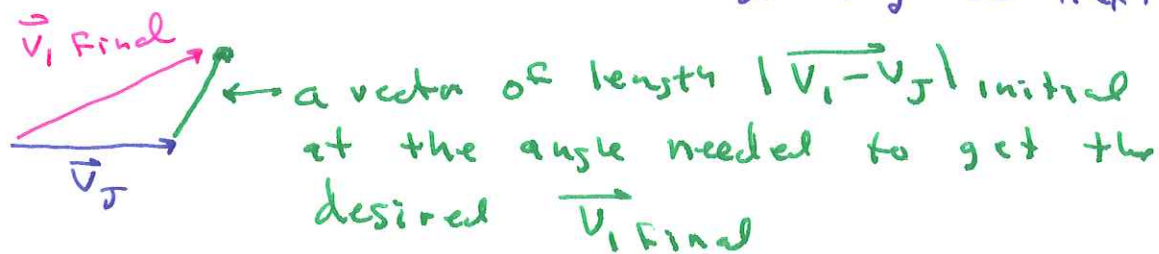 V₁ Final
a vector of length |V₁ - V_J| initial
at the angle needed to get the
V_J
desired V₁ Final